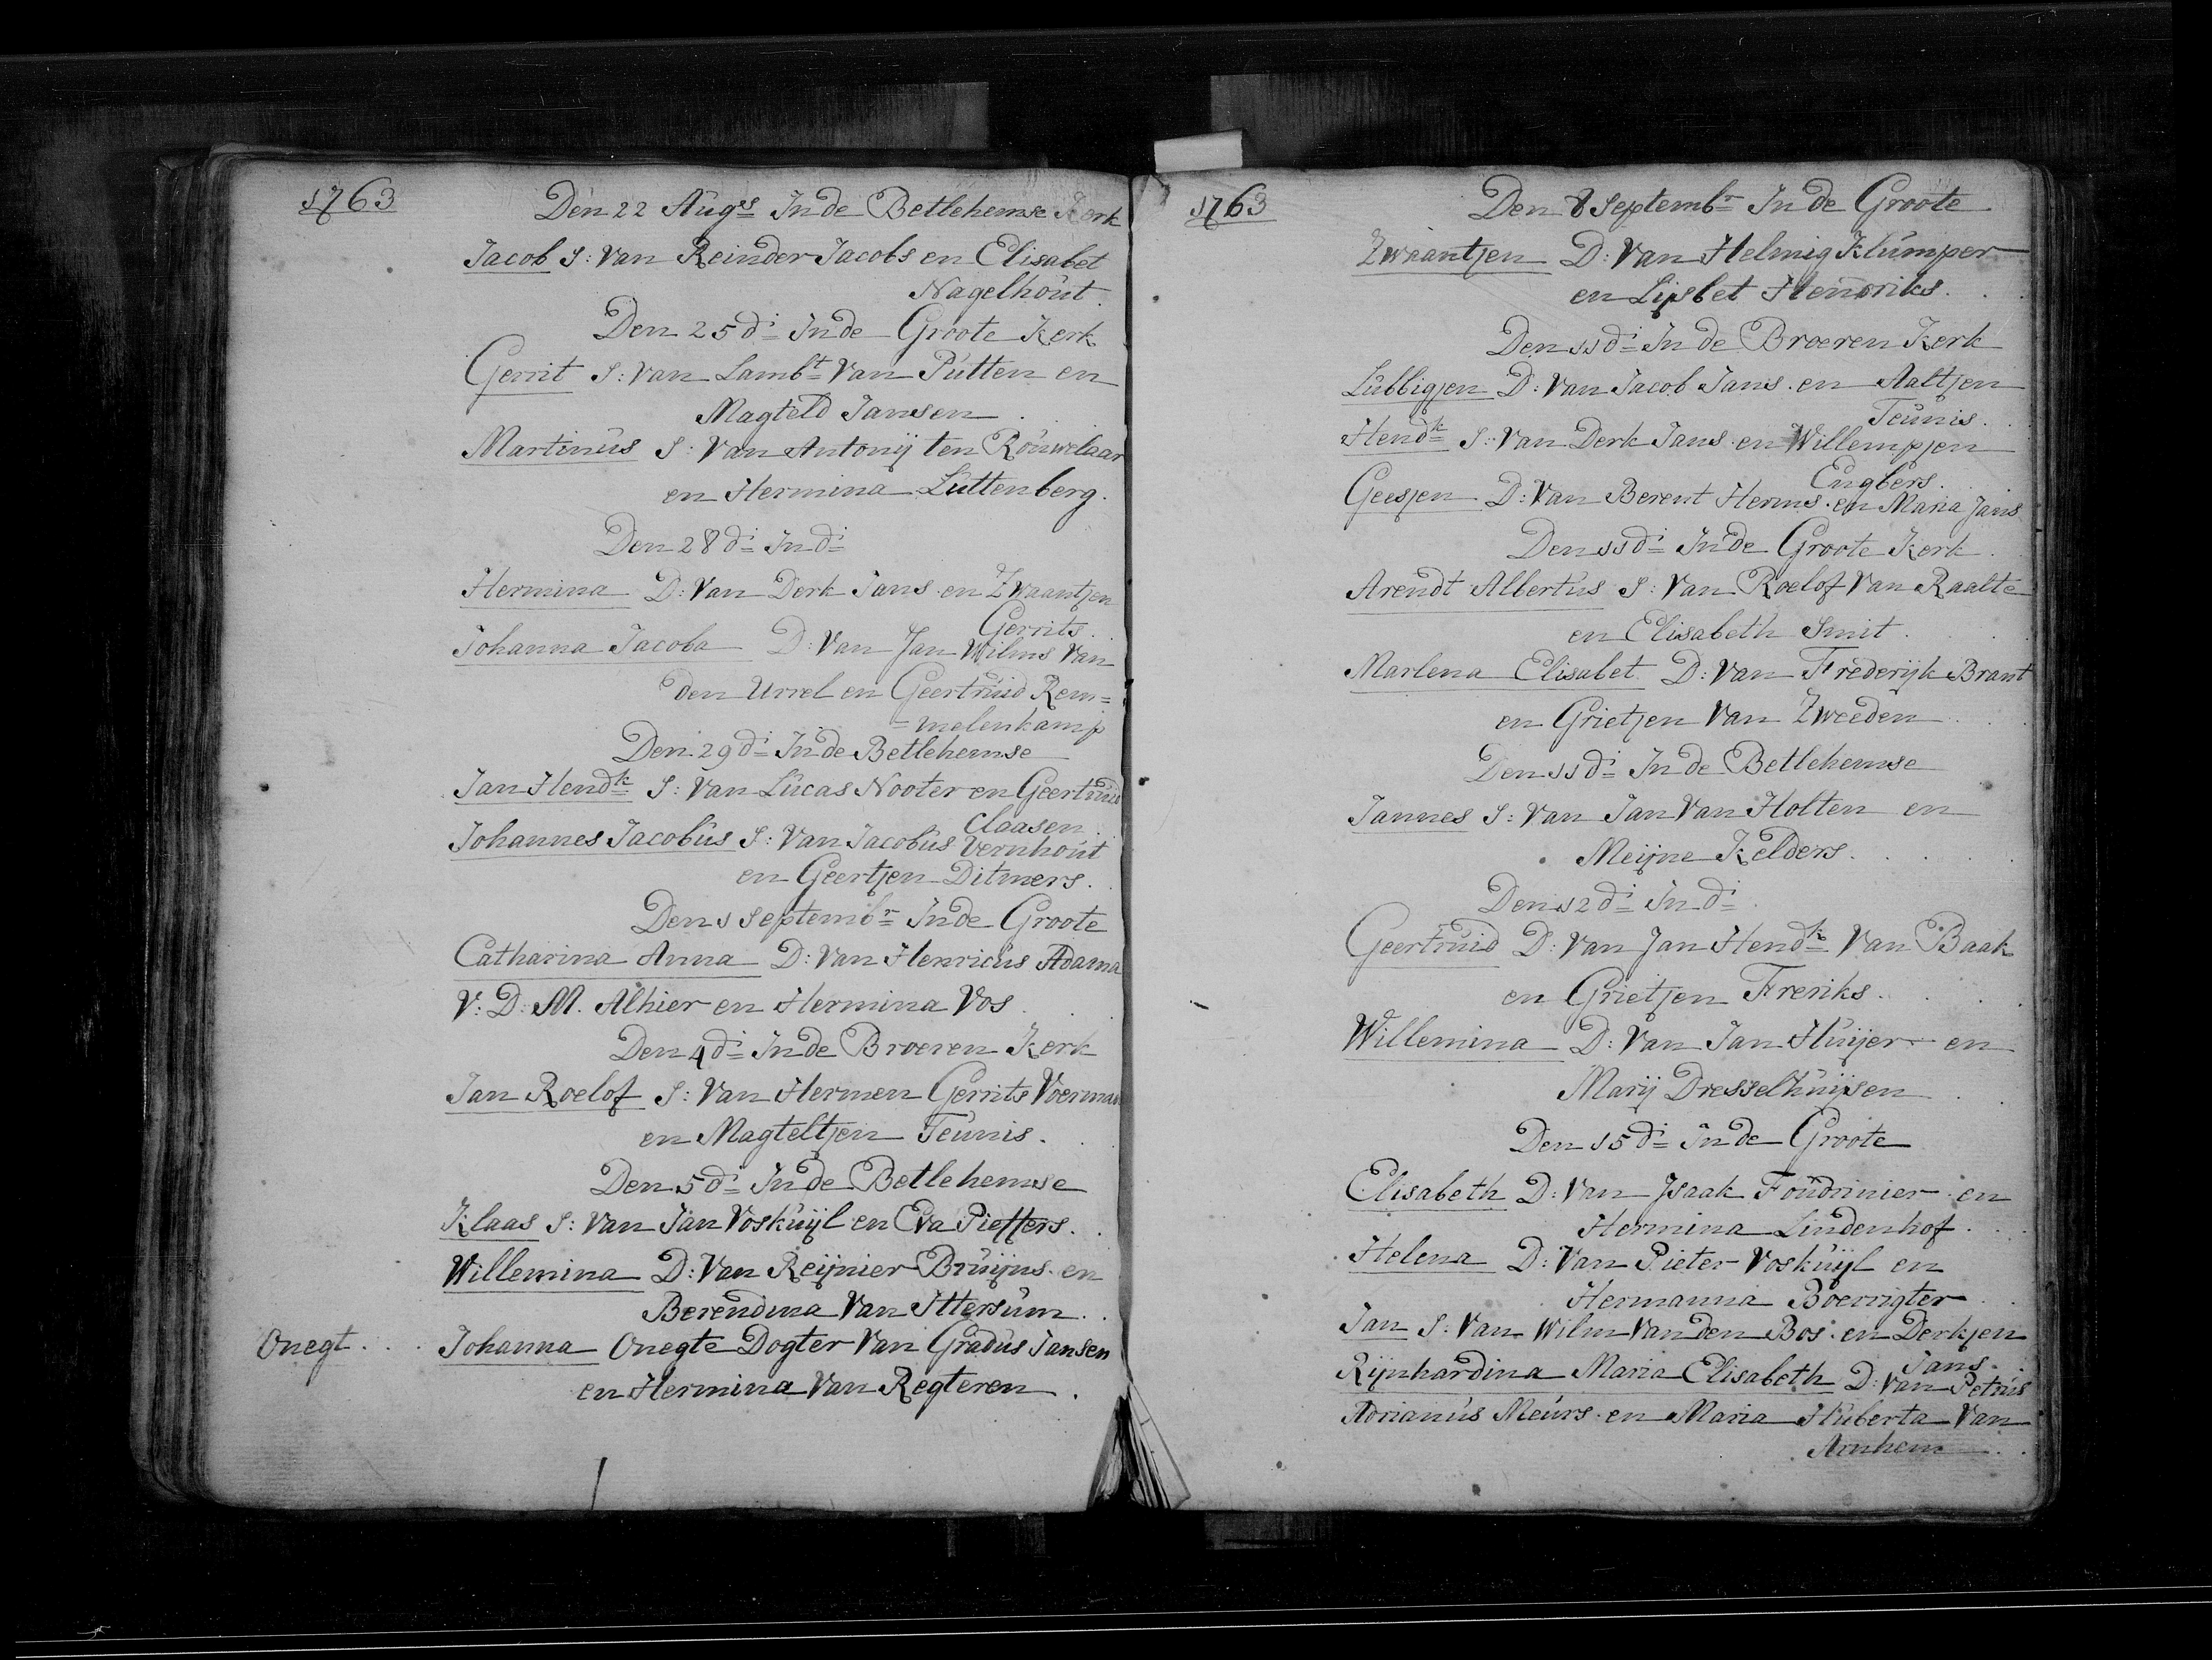 1763
Den 22 Augs In de Betlehemse Kerk
Jacob S: Van Reinder Jacobs en Elisabet
Nagelhout.
Den 25 di In de Groote Kerk
Gerrit S: Van Lambt Van Putten en
Magteld Jansen
Martinus S: Van Antonij ten Rouwelaar
en Hermina Luttenberg.
Den 28 di In di
Hermina D: Van Derk Jans en Zwaantjen
Gerrits.
Johanna Jacoba D: Van Jan Wilms Van
den Urrel en Geertruid Rem=
=melenkamp
Den 29 di In de Betlehemse
Jan Hendk S: Van Lucas Nooter en Geertruid
Claasen
Johannes Jacobus S: Van Jacobus Vernhout
en Geertjen Ditmers.
Den 1 Septembr In de Groote
Catharina Anna D: Van Henricus Adama
V: D: M. Alhier en Hermina Vos
Den 4 di In de Broeren Kerk
Jan Roelof S: Van Hermen Gerrits Voerman
en Magteltjen Teunis.
Den 5 di In de Betlehemse
Klaas S: Van Jan Voskuijl en Eva Pieffers.
Willemina D: Van Reijnier Bruijns en
Berendina Van Ittersum.
Onegt. Johanna Onegte Dogter Van Gradus Jansen
en Hermina Van Regteren.
1763
Den 8 Septembr In de Groote
Zwaantjen D: Van Helmig Klumper
en Lijsbet Hendriks.
Den 11 di In de Broeren Kerk
Lubbigjen D: Van Jacob Jans en Aaltjen
Teunis.
Hendk S: Van Derk Jans en Willempjen
Engbers.
Geesjen D: Van Berent Herms en Maria Jans
Den 11 di In de Groote Kerk
Arendt Albertus S: Van Roelof Van Raalte
en Elisabeth Smit.
Marlena Elisabet D: Van Frederijk Brant
en Grietjen Van Zweeden
Den 11 di In de Betlehemse
Jannes S: Van Jan Van Holten en
Meijne Kelders.
Den 12 di In di
Geertruid D: Van Jan Hendk Van Baak
en Grietjen Freriks.
Willemina D: Van Jan Huijer en
Marij Dresselhuijsen
Den 15 di In de Groote
Elisabeth D: Van Isaak Foudrinier en
Hermina Lindenhof.
Helena D: Van Pieter Voskuijl en
Hermanna Boerrigter
Jan S: Van Wilm Van den Bos en Derkjen
Jans.
Rijnhardina Maria Elisabeth D: Van Petrus
Adrianus Meurs en Maria Huberta Van
Arnhem